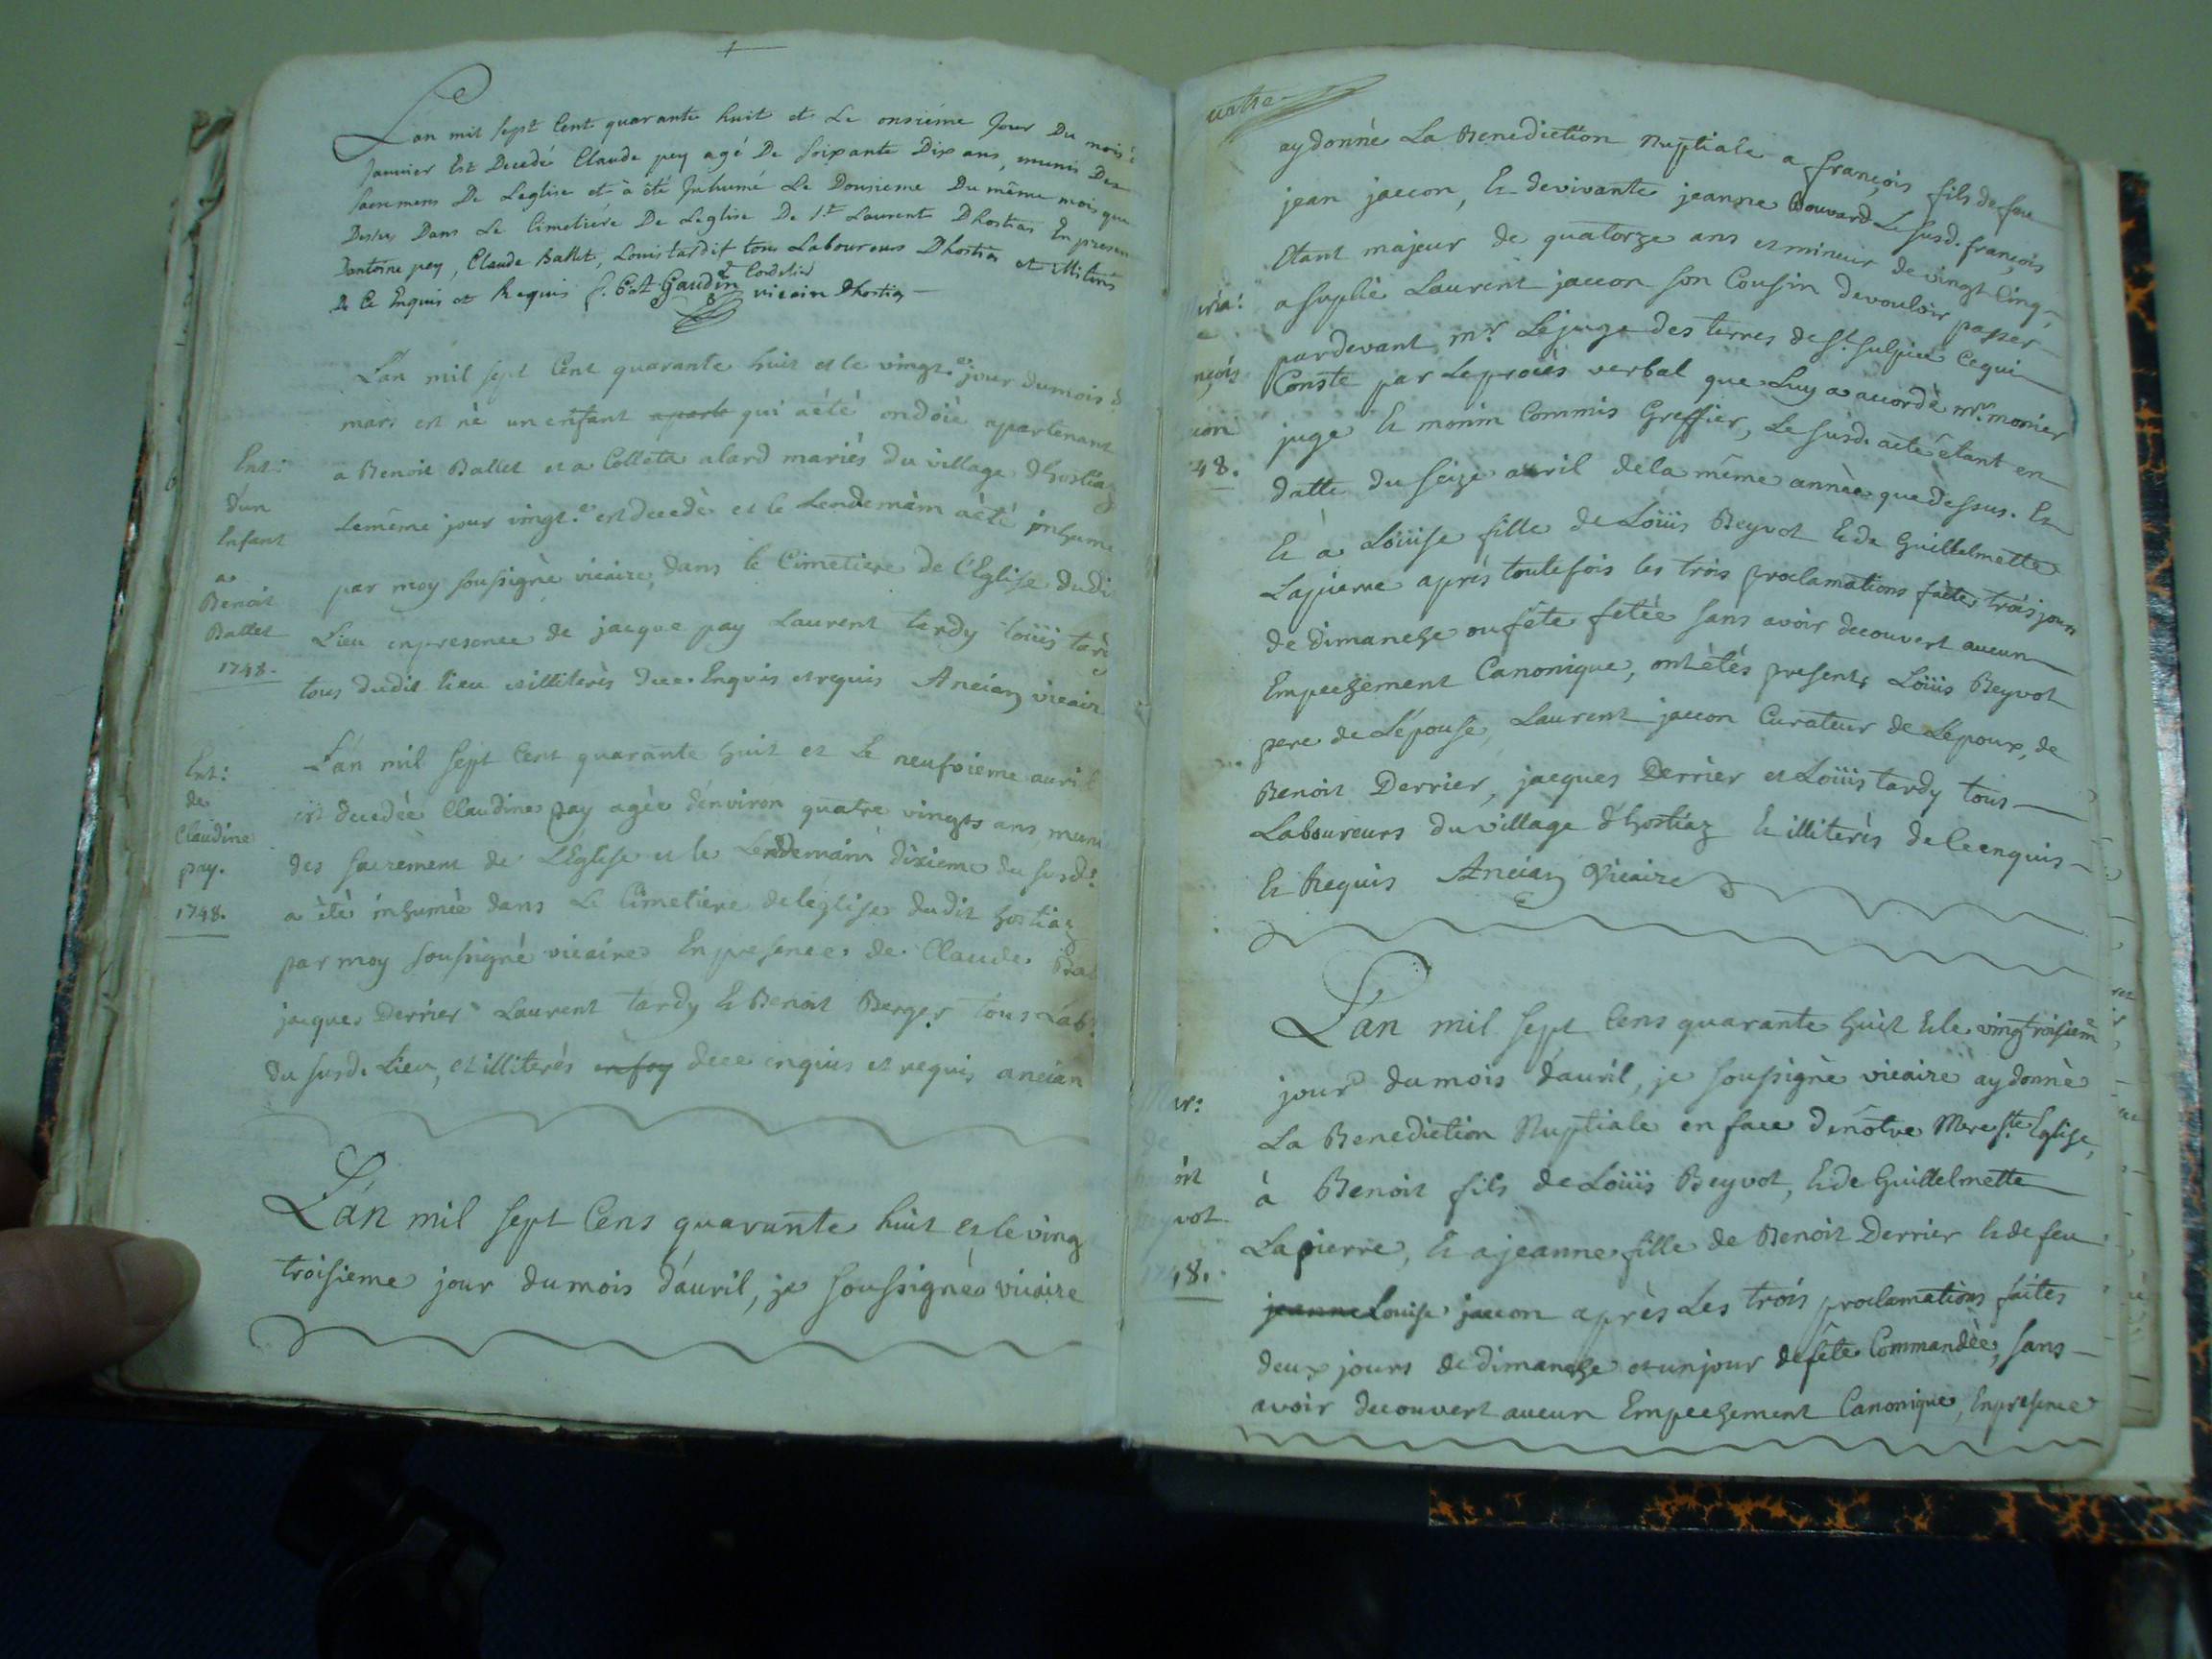 L'an mil sept Cent quarante huit et Le onsiéme Jour Du mois
Janvier Est Decedé Claude pey agé De Soixante Dix ans, munis Des
Sacremens De Leglise et à été Inhumé Le Dousieme Du même mois que
Dessus Dans Le Cimetiére De Leglise De St Laurent Dhostias En presen
Dantoine pey, Claude Ballet, Louis tardif tous Laboureurs Dhostias et illiteres
De Ce Enquis et Requis f. Gaudin Cordelier vicaire Dhostias
L'an mil sept Cent quarante huit et le vingt.e jour du mois d
mars est né un enfant qui a été ondoié apartenant
a Benoit Ballet et a Colleta alard mariés du village dhostiaz
le même jour vingt.e est decedè et le Lendemain a èté inhume
par moy soussignè vicaire, dans le Cimetiere de l'Eglise dudi
Lieu en presence de jacque pay Laurent tardy Loüis tard
tous dudit lieu et illiterès de ce Enquis et requis Ancian vicair
Ent:
d'un
Enfant
a
Benoit
Ballet
1748.
L'an mil Sept Cent quarante huit et Le neufvieme avril
est decedée Claudine pay agée d'environ quatre vingts ans, muni
des sacrement de L'Eglise et le Lendemain dixieme du susd.t
a èté inhumèe dans Le Cimetiere de leglise dudit hostiaz
par moy soussigné vicaire En presence de Claude Bal
jacques Derrier Laurent tardy et Benoit Berger tous Lab.
du susd. Lieu, et illiterés en foy de ce enquis et requis ancian
Ent:
de
Claudine
pay.
1748.
L'an mil sept Cens quarante huit et le ving
troisieme jour du mois d'avril, je soussignée vicaire
ay donnè La Benediction Nuptiale a françois fils de feu
jean jaccon, et de vivante jeanne Bouvard Le susd. françois
Etant majeur de quatorze ans et mineur de vingt Cinq,
a suplié Laurent jaccon son Cousin de vouloir passer
pardevant mr. Le juge des terres de St. Sulpice Ce qui
Conste par Le procès verbal que Luy a accordè mr. monier
juge et monin Commis Greffier, Le susd. acte étant en
datte du seize avril de la même année que dessus. Et
Et à Loüise fille de Loüis Beyvot et de Guillelmette
Lapierre après toutefois les trois proclamations faites trois jours
de dimanche ou fête fetée sans avoir decouvert aucun
Empechement Canonique, ont étés presents Loüis Beyvot
pere de L'épouse, Laurent jaccon Curateur de L'epoux, de
Benoit Derrier, jacques Derrier et Loüis tardy tous
Laboureurs du village d'hostiaz et illiterès de Ce enquis
et Requis Ancian Vicaire
ria:
nçois
48.
L'an mil sept Cens quarante huit et le vingtroisiem
jour du mois d'avril, je soussigné vicaire ay donnè
La Benediction Nuptiale en face de nôtre Mere ste Eglise,
à Benoit fils de Loüis Beyvot, et de Guillelmette
Lapierre, et a jeanne fille de Benoit Derrier et de feu
jeanne Louise jaccon après Les trois proclamations faites
deux jours de dimanche et un jour de fête Commandèe, sans
avoir decouvert aucun Empechement Canonique, En presence
r:
oit
vot
8.